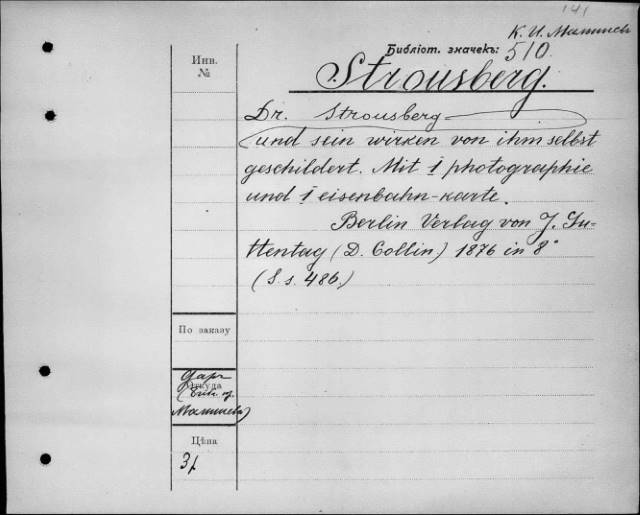 141
К. И. Малышевъ
Библіот. значекъ: 510
Инв. №
Strousberg.
Dr. Strousberg
und sein wirken von ihm selbst
geschildert. Mit 1 photographie
und 1 eisenbahn-karte.
Berlin Verlag von J. Gu-
ttentag (D. Collin) 1876 in 8°
(S. s. 486.)
По заказу
Откуда
Даръ
Малышева)
Цѣна
3 р